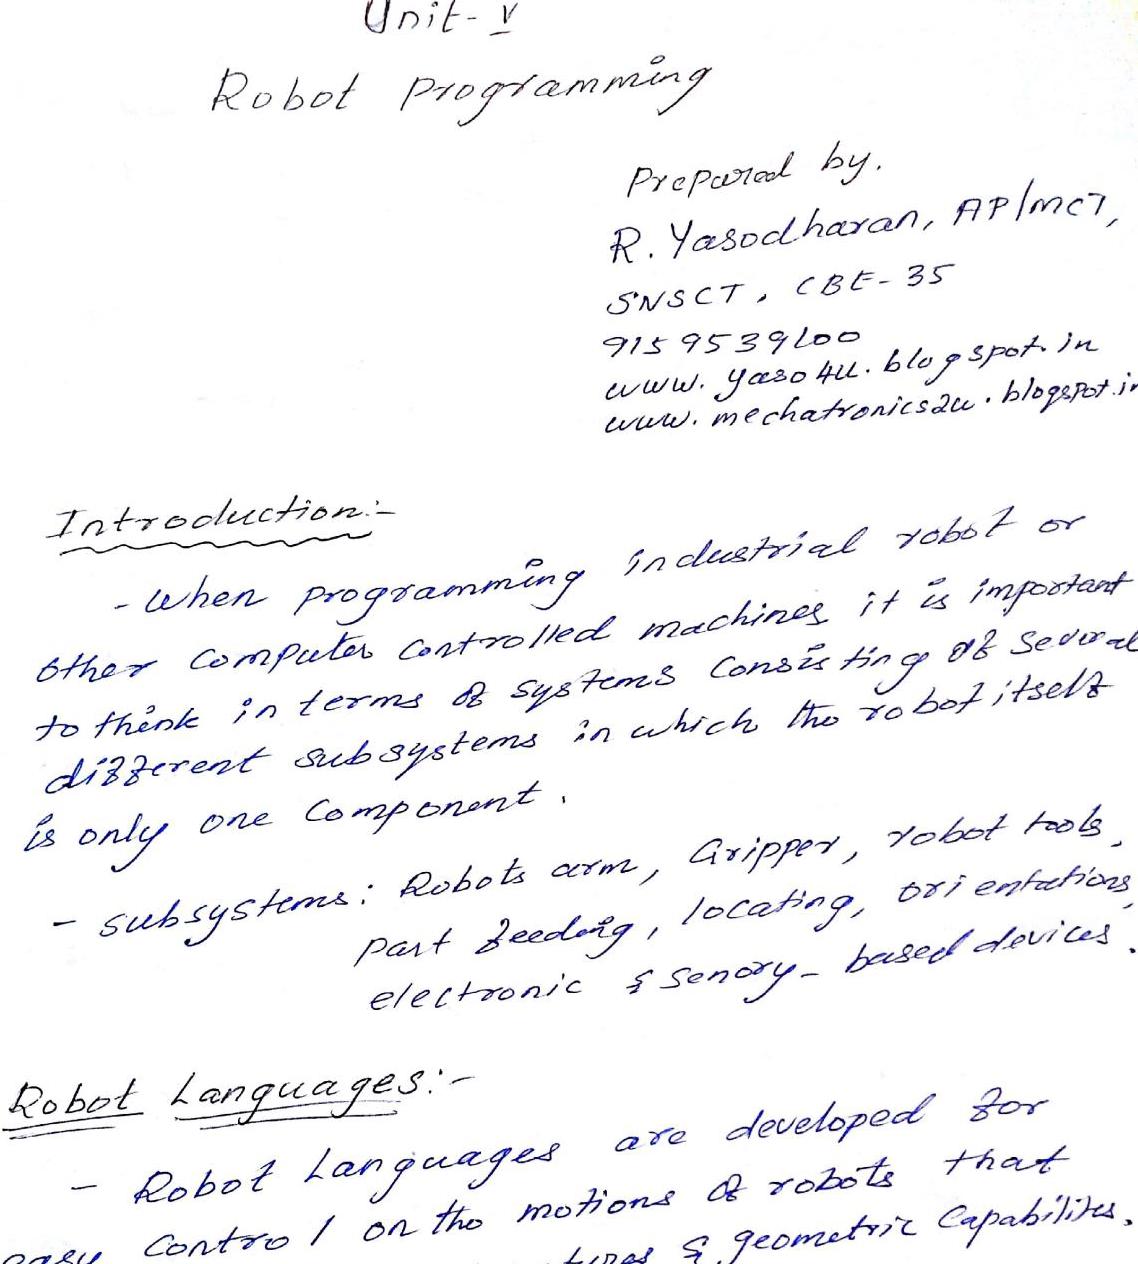 Unit-V
Robot Programming
Prepared by.
R. Yasodharan, AP/MCT,
SNSCT, CBE-35
9159539600
www.yaso4u.blogspot.in
www.mechatronics2u.blogspot.in
Introduction:-
- When programming industrial robot or
other computer controlled machines it is important
to think in terms of systems consisting of several
different subsystems in which the robot itself
is only one component.
- subsystems: Robots arm, Gripper, robot tools,
part feeding, locating, orientations,
electronic & senory-based devices.
Robot Languages:-
- Robot Languages are developed for
easy control on the motions of robots that
& geometric capabilites.